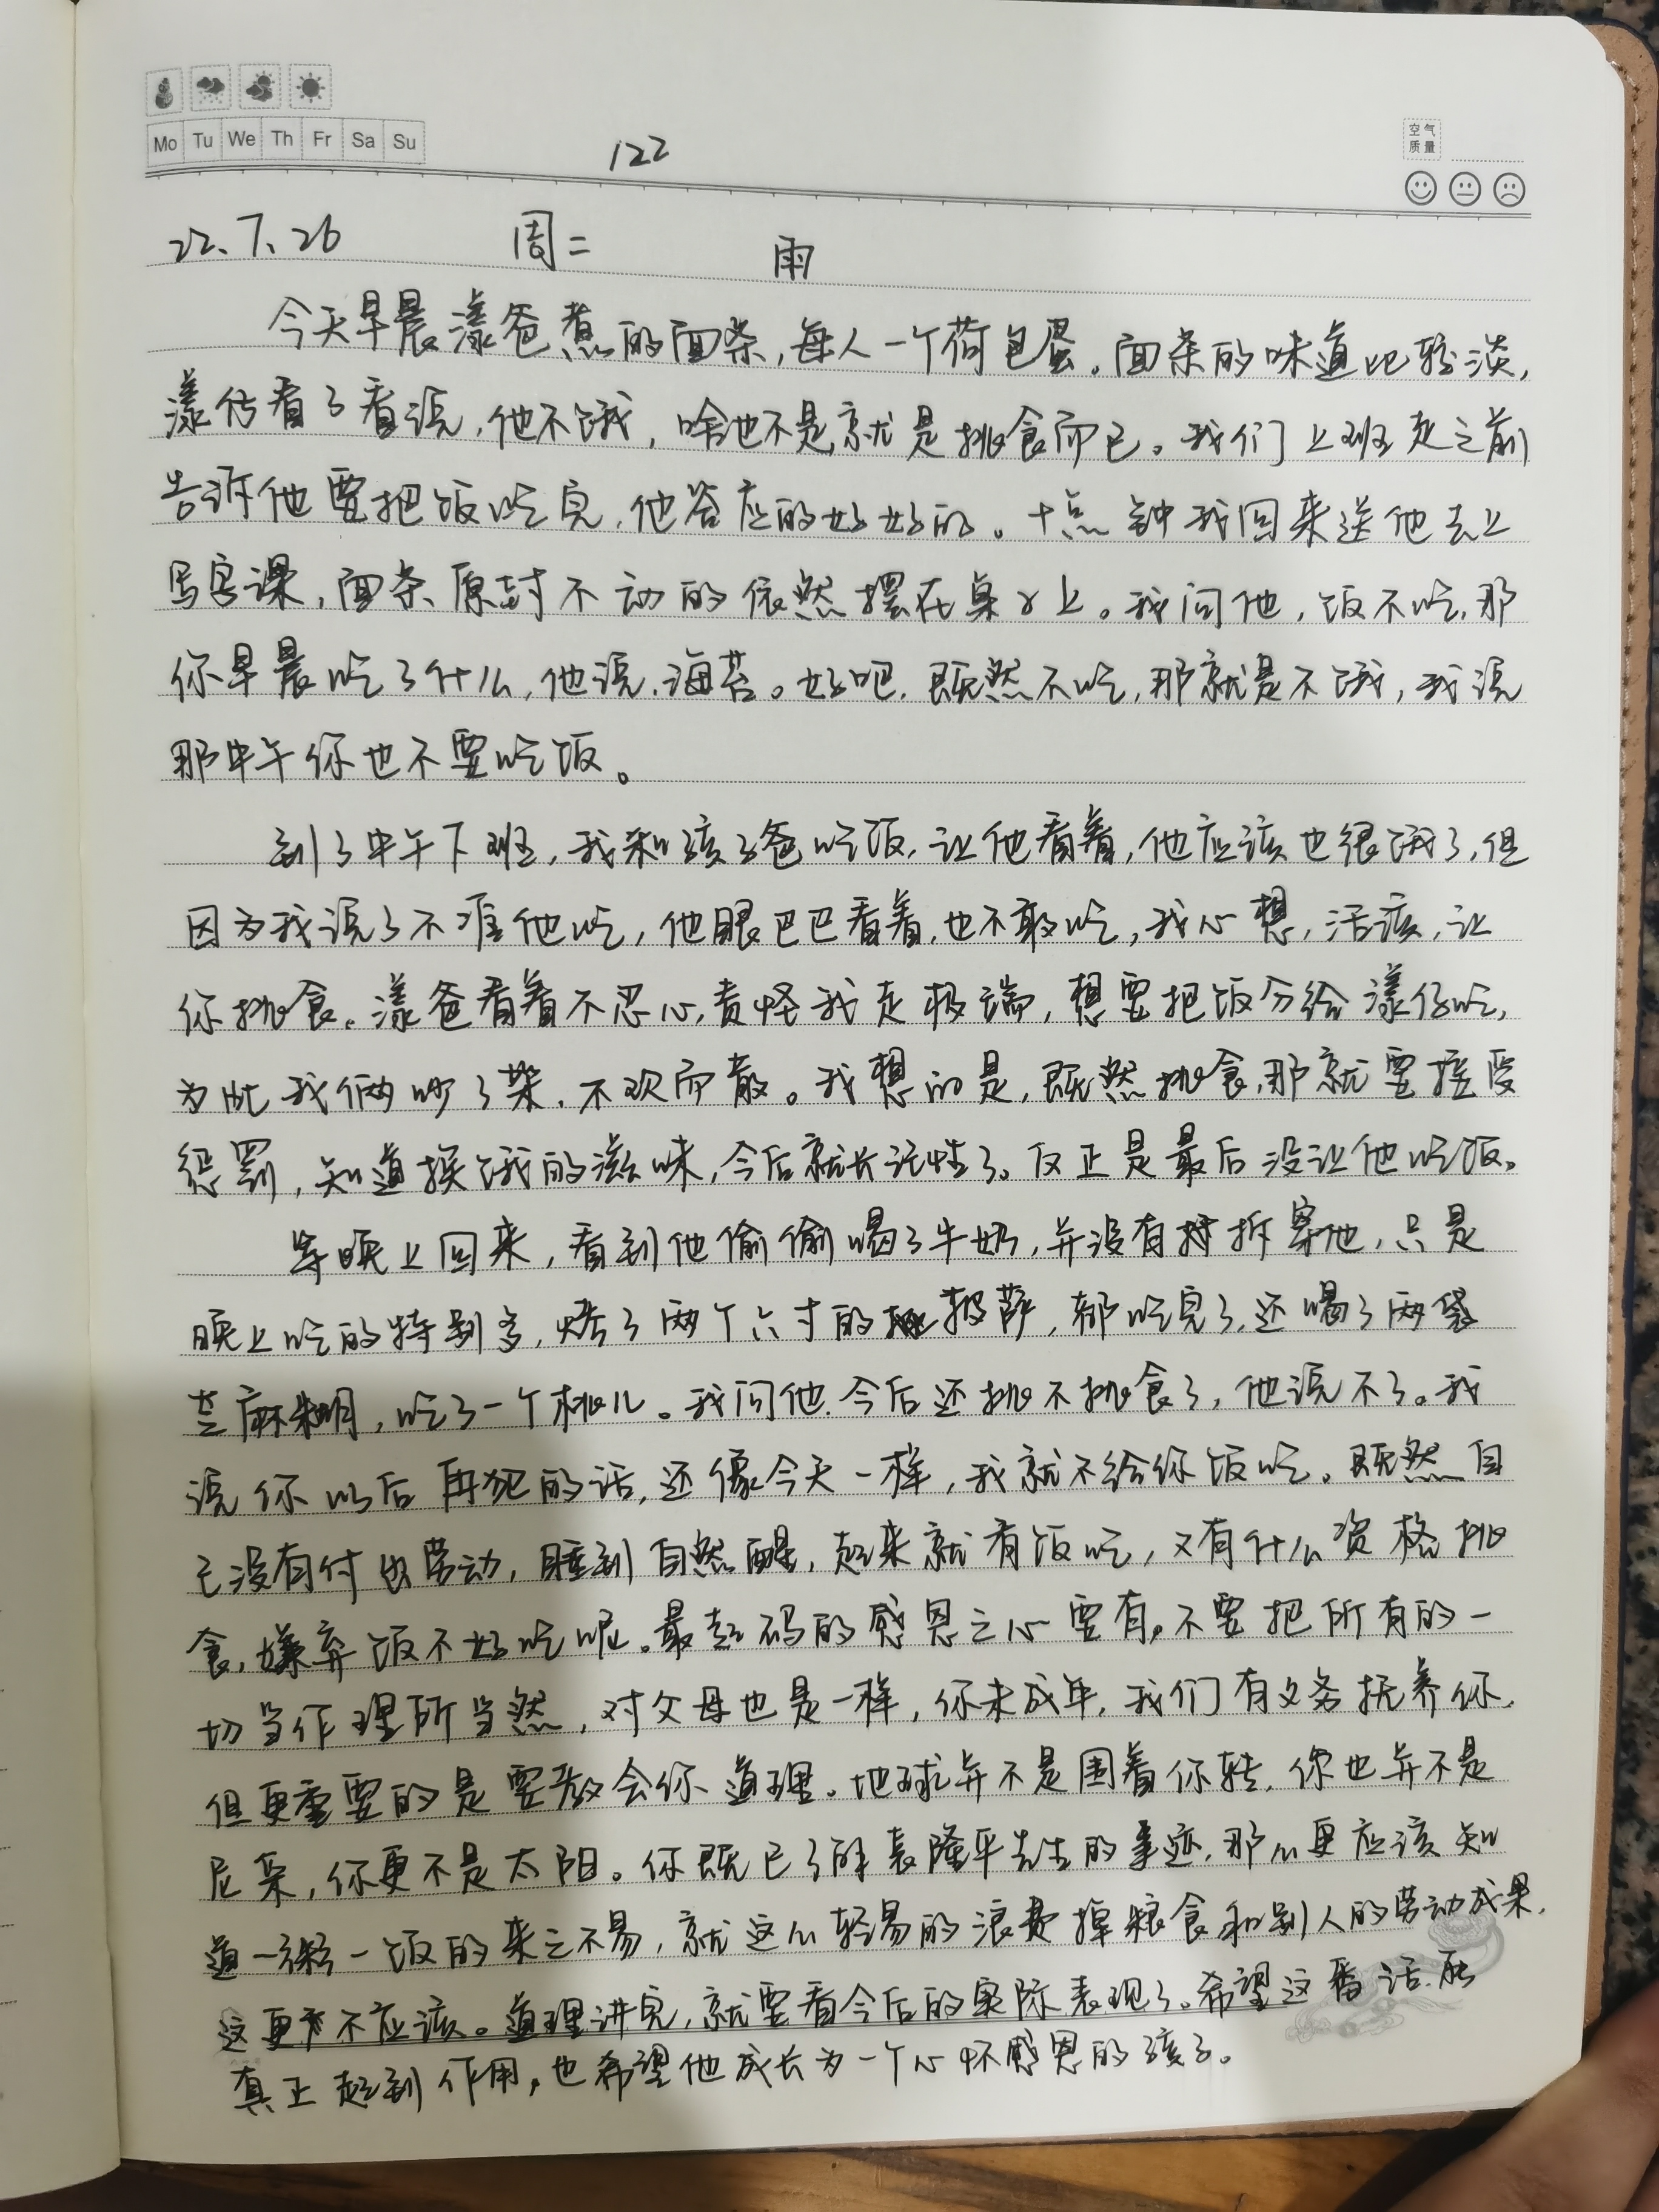 Mo Tu We Th Fr Sa Su
122
空气
质量
22.7.26 周二 雨
今天早晨漾爸煮的面条，每人一个荷包蛋。面条的味道比较淡，
漾仔看了看说，他不饿，啥也不是，就是挑食而已。我们上班走之前
告诉他要把饭吃完，他答应的好好的。十点钟我回来送他去上
写字课，面条原封不动的依然摆在桌子上。我问他，饭不吃，那
你早晨吃了什么，他说，海苔。好吧，既然不吃，那就是不饿，我说
那中午你也不要吃饭。
到了中午下班，我和孩子爸吃饭，让他看着，他应该也很饿了，但
因为我说了不准他吃，他眼巴巴看着，也不敢吃，我心想，活该，让
你挑食。漾爸看着不忍心，责怪我走极端，想要把饭分给漾仔吃，
为此我俩吵了架，不欢而散。我想的是，既然挑食，那就要接受
惩罚，知道挨饿的滋味，今后就长记性了。反正是最后没让他吃饭。
等晚上回来，看到他偷偷喝了牛奶，并没有拆穿他，只是
晚上吃的特别多，烤了两个六寸的披萨，都吃完了，还喝了两袋
芝麻糊，吃了一个桃儿。我问他，今后还挑不挑食了，他说不了。我
说你以后再犯的话，还像今天一样，我就不给你饭吃。既然自
己没有付出劳动，睡到自然醒，起来就有饭吃，又有什么资格挑
食，嫌弃饭不好吃呢。最起码的感恩之心要有，不要把所有的一
切当作理所当然，对父母也是一样，你未成年，我们有义务抚养你，
但更重要的是要教会你道理。地球并不是围着你转，你也并不是
尼采，你更不是太阳。你既已了解袁隆平先生的事迹，那么更应该知
道一粥一饭的来之不易，就这么轻易的浪费掉粮食和别人的劳动成果，
这更不应该。道理讲完，就要看今后的实际表现了。希望这番话能
真正起到作用，也希望他成长为一个心怀感恩的孩子。